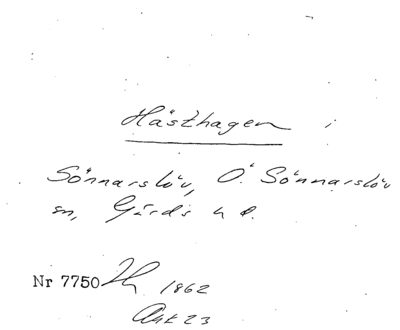 Hästhagen i
Sönnarslöv, Ö Sönnarslöv
sn, Gärds hd.
Nr 7750 1862
Akt 23